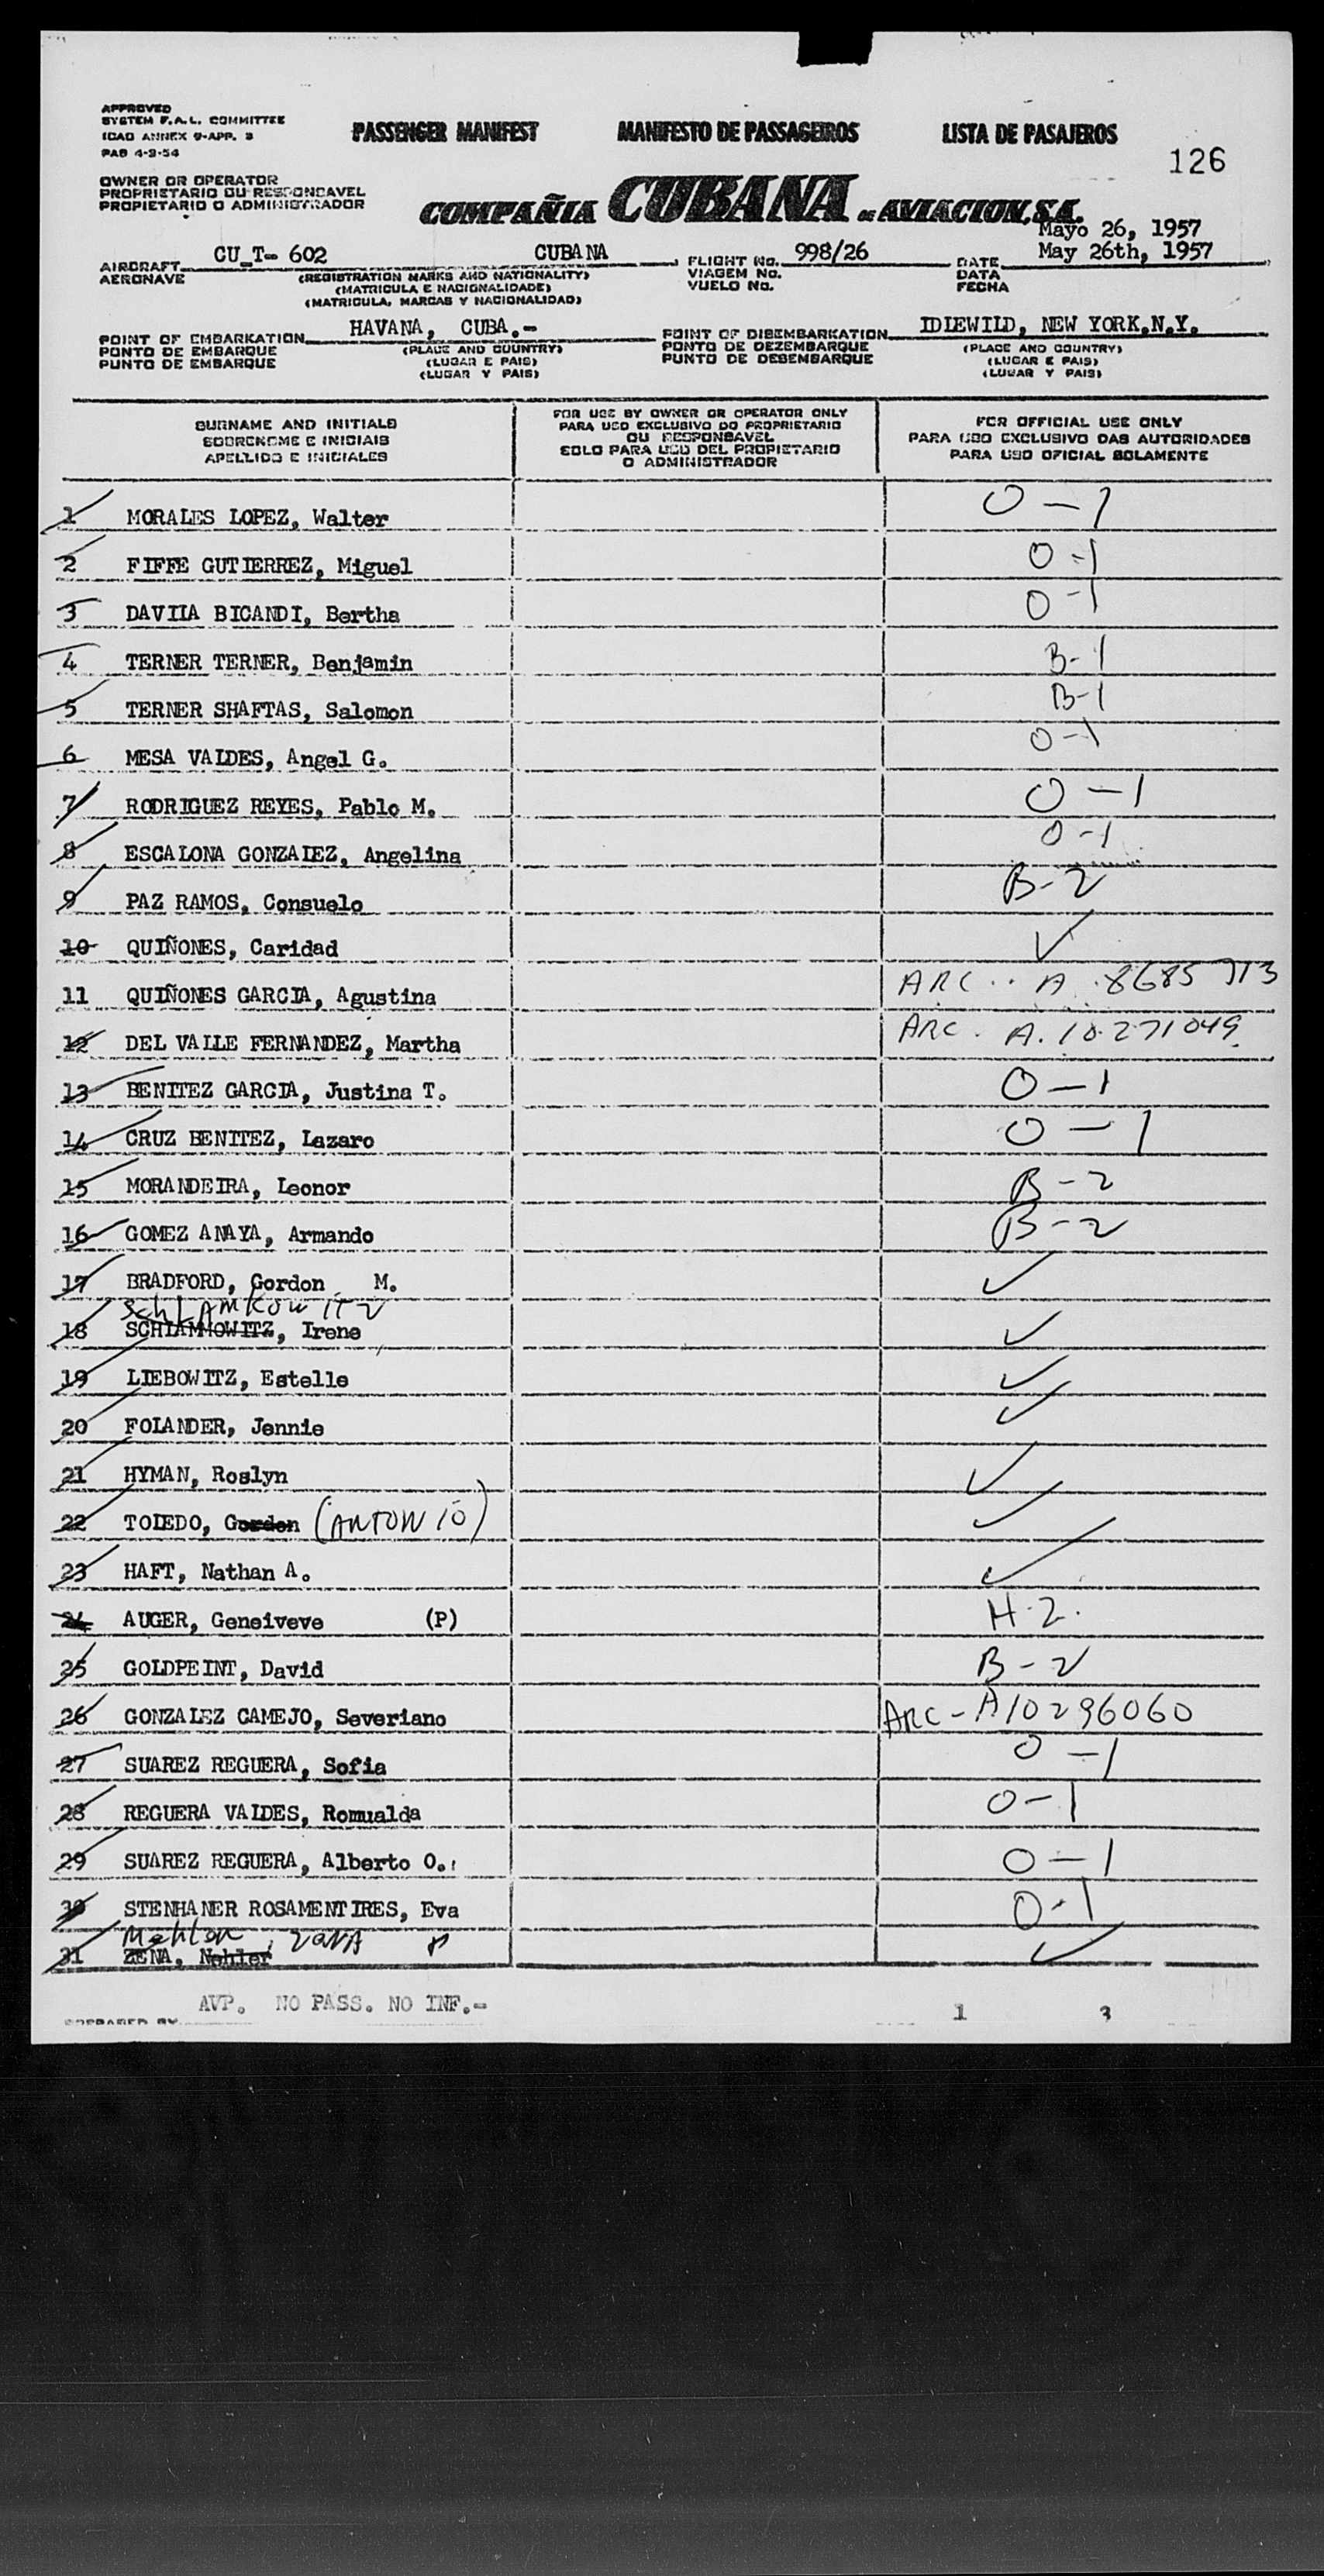 APPROVED
SYSTEM F.A.L. COMMITTEE
ICAO ANNEX 9-APP. 3
PAB 4-9-54
PASSENGER MANIFEST MANIFESTO DE PASSAGEIROS LISTA DE PASAJEROS
126
OWNER OR OPERATOR
PROPRIETARIO OU RESPONSAVEL
PROPIETARIO O ADMINISTRADOR
COMPAÑIA CUBANA DE AVIACION, S.A.
Mayo 26, 1957
AIRCRAFT CU_T- 602 CUBANA FLIGHT No. 998/26 DATE May 26th, 1957
AERONAVE (REGISTRATION MARKS AND NATIONALITY) VIAGEM No. DATA
(MATRICULA E NACIONALIDADE) VUELO No. FECHA
(MATRICULA, MARCAS Y NACIONALIDAD)
POINT OF EMBARKATION HAVANA, CUBA.- POINT OF DISEMBARKATION IDIEWILD, NEW YORK.N.Y.
PONTO DE EMBARQUE (PLACE AND COUNTRY) PONTO DE DEZEMBARQUE (PLACE AND COUNTRY)
PUNTO DE EMBARQUE (LUGAR E PAIS) PUNTO DE DESEMBARQUE (LUGAR E PAIS)
(LUGAR Y PAIS) (LUGAR Y PAIS)
SURNAME AND INITIALS
SOBRENOME E INICIAIS
APELLIDO E INICIALES
FOR USE BY OWNER OR OPERATOR ONLY
PARA USO EXCLUSIVO DO PROPRIETARIO
OU RESPONSAVEL
SOLO PARA USO DEL PROPIETARIO
O ADMINISTRADOR
FOR OFFICIAL USE ONLY
PARA USO EXCLUSIVO DAS AUTORIDADES
PARA USO OFICIAL SOLAMENTE
1 MORALES LOPEZ, Walter 0-1
2 FIFFE GUTIERREZ, Miguel 0-1
3 DAVIIA BICANDI, Bertha 0-1
4 TERNER TERNER, Benjamin B-1
5 TERNER SHAFTAS, Salomon B-1
6 MESA VALDES, Angel G. 0-1
7 RODRIGUEZ REYES, Pablo M. 0-1
8 ESCALONA GONZAIEZ, Angelina 0-1
9 PAZ RAMOS, Consuelo B-2
10 QUIÑONES, Caridad ✓
11 QUIÑONES GARCIA, Agustina ARC.. A 8685 713
12 DEL VALLE FERNANDEZ, Martha ARC. A.10.271049
13 BENITEZ GARCIA, Justina T. 0-1
14 CRUZ BENITEZ, Lazaro 0-1
15 MORANDEIRA, Leonor B-2
16 GOMEZ ANAYA, Armando B-2
17 BRADFORD, Gordon M. ✓
SchLAMKOWITZ
18 SCHIAMMOWITZ, Irene ✓
19 LIEBOWITZ, Estelle ✓
20 FOLANDER, Jennie ✓
21 HYMAN, Roslyn ✓
22 TOIEDO, Gordon (ANTONIO) ✓
23 HAFT, Nathan A. ✓
24 AUGER, Geneiveve (P) H-2.
25 GOLDPEINT, David B-2
26 GONZALEZ CAMEJO, Severiano ARC-A10296060
27 SUAREZ REGUERA, Sofia 0-1
28 REGUERA VAIDES, Romualda 0-1
29 SUAREZ REGUERA, Alberto O. 0-1
30 STENHANER ROSAMENTIRES, Eva 0-1
31 ZENA, Nehler ✓
AVP. NO PASS. NO INF.-
PREPARED BY
1 3